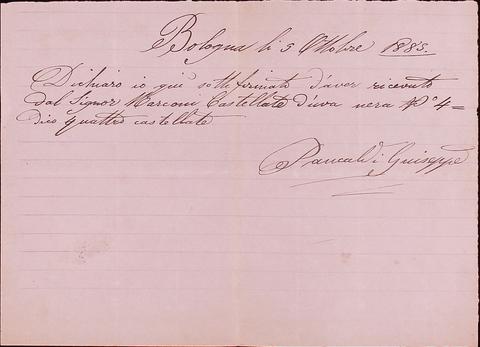 Bologna li 5 Ottobre 1885.
Dichiaro io quì sottofirmato d'aver ricevuto
dal Signor Marconi Castellate d'uva nera N° 4=
dico quattro castellate
Pancaldi Guiseppe